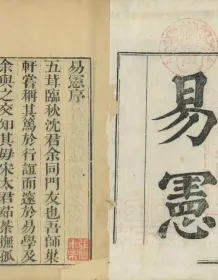 易憲
易憲序
五茸臨秋沈君余同門友也吾師巢
軒嘗稱其篤於行誼而邃於易學及
余與之交知其毋宋太君茹荼撫孤